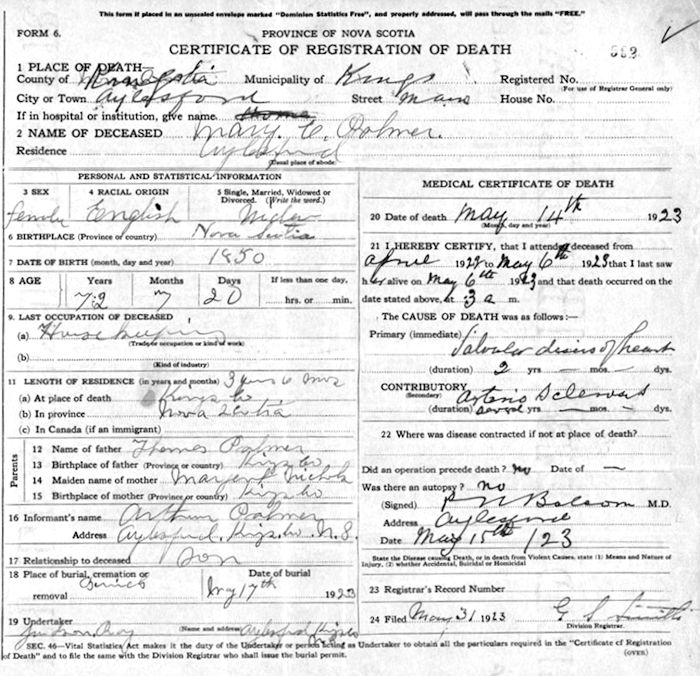 This form if placed in an unsealed envelope marked "Dominion Statistics Free", and properly addressed, will pass through the mails "FREE."
FORM 6.
PROVINCE OF NOVA SCOTIA
CERTIFICATE OF REGISTRATION OF DEATH
1 PLACE OF DEATH—
County of Municipality of Kings Registered No.
(For use of Registrar General only)
City or Town Aylesford Street Main House No.
If in hospital or institution, give name home
2 NAME OF DECEASED Mary C. Palmer.
Residence Aylesford
(Usual place of abode)
PERSONAL AND STATISTICAL INFORMATION
3 SEX 4 RACIAL ORIGIN 5 Single, Married, Widowed or Divorced. (Write the word.)
English
6 BIRTHPLACE (Province or country) Nova Scotia
7 DATE OF BIRTH (month, day and year) 1850
8 AGE Years Months Days If less than one day,
72 7 20 hrs. or min.
9. LAST OCCUPATION OF DECEASED
(a) House keeping
(Trade or occupation or kind of work)
(b)
(Kind of industry)
11 LENGTH OF RESIDENCE (in years and months) 3 yrs 6 mos
(a) At place of death Kings Co
(b) In province Nova Scotia
(c) In Canada (if an immigrant)
Parents
12 Name of father Thomas Palmer
13 Birthplace of father (Province or country) Kings Co
14 Maiden name of mother Nichols
15 Birthplace of mother (Province or country) Kings Co
16 Informant's name Arthur Palmer
Address Aylesford, Kings Co. N.S.
17 Relationship to deceased Son
18 Place of burial, cremation or removal Date of burial
May 17th 1923
19 Undertaker (Name and address) Aylesford Kings Co
N.S.
MEDICAL CERTIFICATE OF DEATH
20 Date of death May 14th 1923
(Month, day and year)
21 I HEREBY CERTIFY, that I attended deceased from
April to May 6th 1923 that I last saw
her alive on May 6th 1923 and that death occurred on the
date stated above, at 3 a m.
The CAUSE OF DEATH was as follows:—
Primary (immediate) Valvular disease of heart
(duration) 2 yrs — mos. — dys.
CONTRIBUTORY Arterio Sclerosis
(Secondary)
(duration) several yrs — mos. — dys.
22 Where was disease contracted if not at place of death?
Did an operation precede death? No Date of —
Was there an autopsy? No
(Signed) Balcom M.D.
Address Aylesford
Date May 15th /23
State the Disease causing Death, or in death from Violent Causes, state (1) Means and Nature of Injury, (2) whether Accidental, Suicidal or Homicidal
23 Registrar's Record Number
24 Filed May 31 1923 G S Smith
Division Registrar.
SEC. 46—Vital Statistics Act makes it the duty of the Undertaker or person acting as Undertaker to obtain all the particulars required in the "Certificate of Registration
of Death" and to file the same with the Division Registrar who shall issue the burial permit.
(OVER)